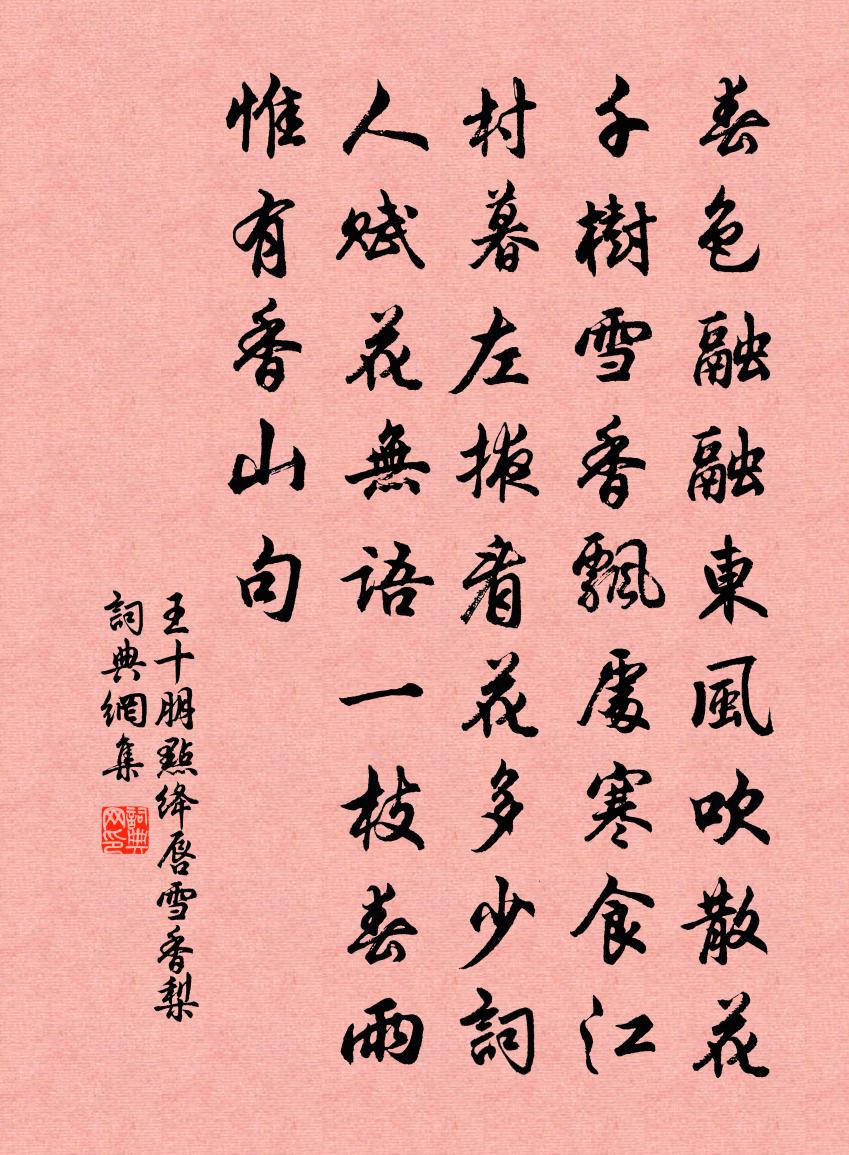 春色融融東風吹散花
千樹雪香飄處寒食江
村暮左掖看花多少詞
人賦花無語一枝春雨
惟有香山句
王十朋點絳唇雪香梨
詞典網集
詞典网印